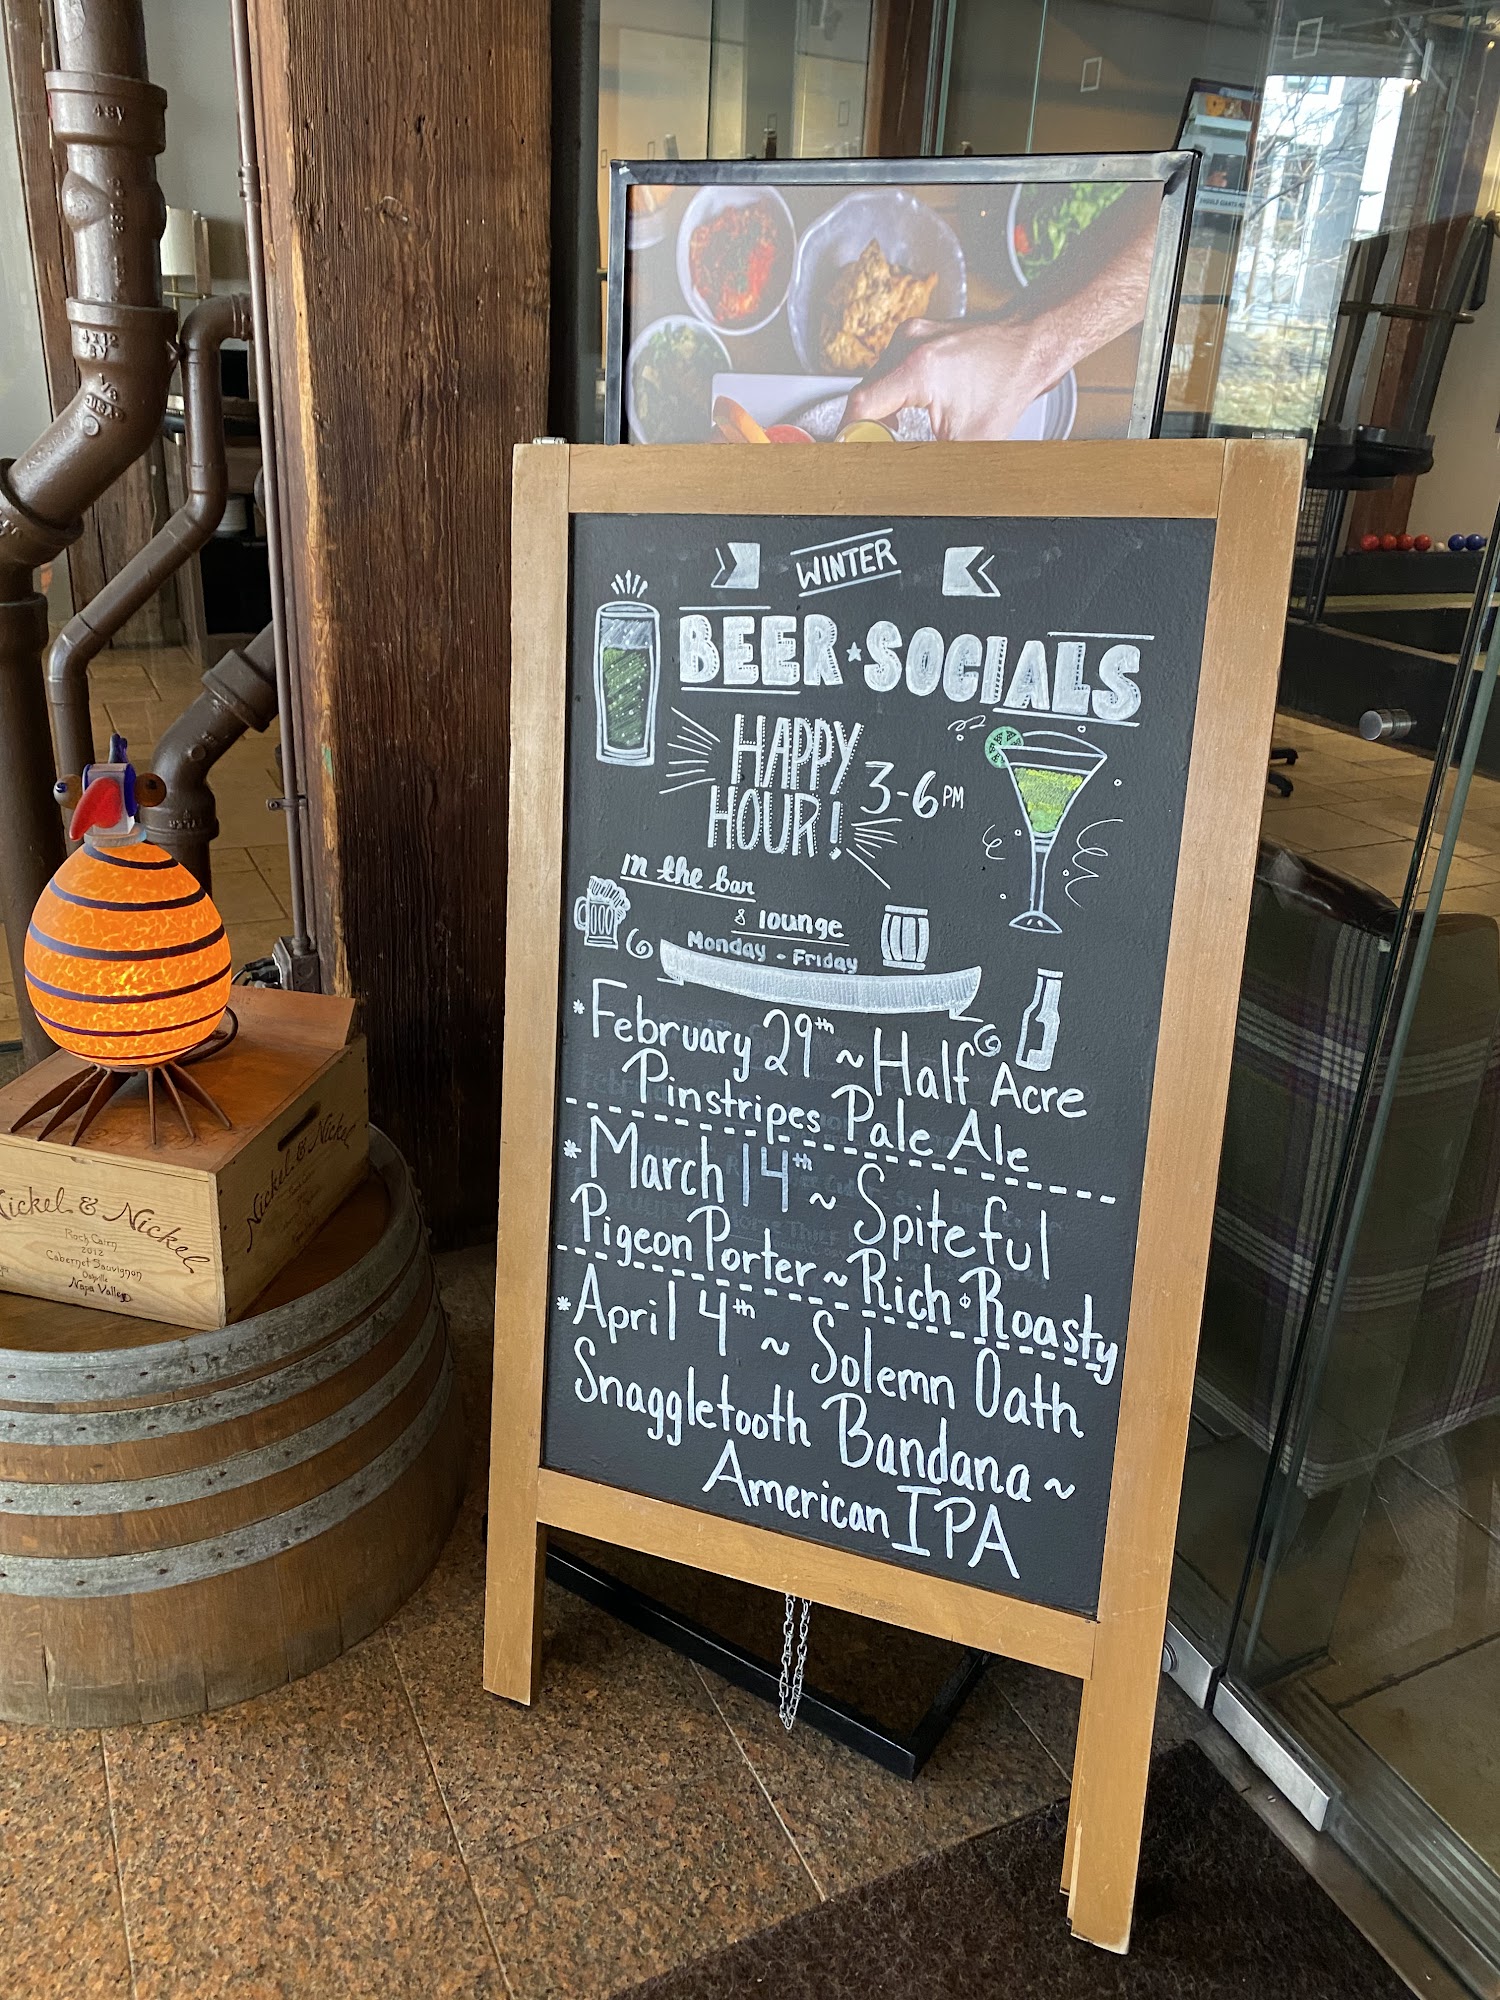 WINTER
BEER ★ SOCIALS
HAPPY
HOUR! 3-6 PM
in the bar
& lounge
Monday - Friday
*February 29th ~ Half Acre
Pinstripes Pale Ale
*March 14th ~ Spiteful
Pigeon Porter ~ Rich & Roasty
*April 4th ~ Solemn Oath
Snaggletooth Bandana ~
American IPA
Nickel & Nickel
Rock Cairn
2012
Cabernet Sauvignon
Oakville
Napa Valley
Nickel & Nickel